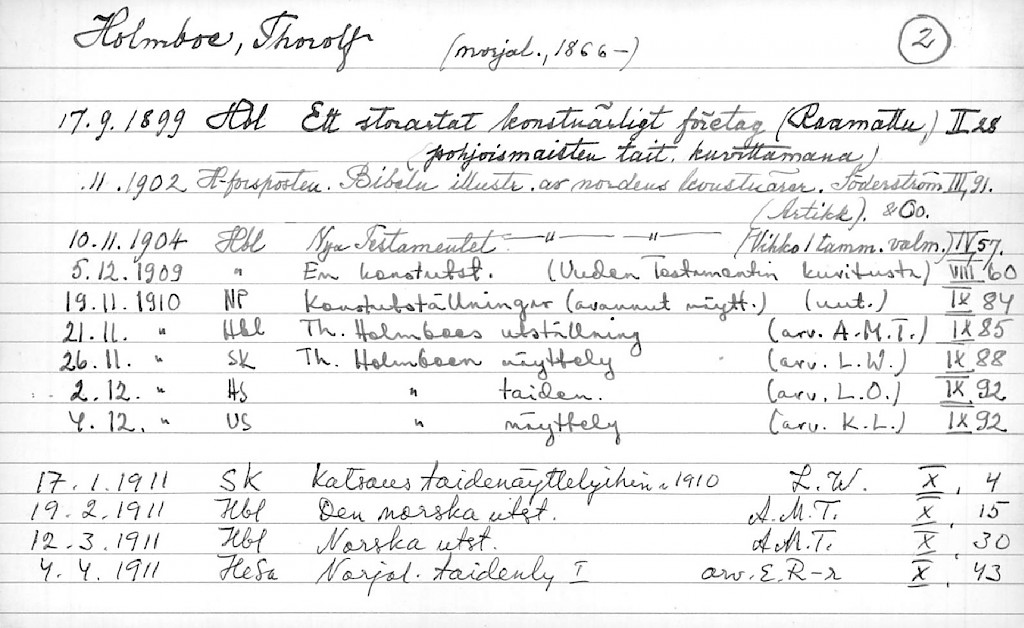 Holmboe, Thorolf (norjal., 1866-) 2
17.9.1899 Hbl Ett storartat konstnärligt företag (Raamattu, II 28
(pohjoismaisten tait. kuvittamana)
.11.1902 H-forsposten. Bibeln illustr. av nordens konstnärer. Söderström III, 91.
(Artikk). & Co.
10.11.1904 Hbl Nya Testamentet — " — — " — (Vihko 1 tamm. valm.) IV 57.
5.12.1909 " En konstutst. (Uuden Testamentin kuvitusta) VIII 60
19.11.1910 NP Konstutställningar (avannut näytt.) (uut.) IX 84
21.11. " Hbl Th. Holmboes utställning (arv. A.M.T.) IX 85
26.11. " SK Th. Holmboen näyttely (arv. L.W.) IX 88
2.12. " HS " taiden. (arv. L.O.) IX 92
4.12. " US " näyttely (arv. K.L.) IX 92
17.1.1911 SK Katsaus taidenäyttelyihin 1910 L.W. X, 4
19.2.1911 Hbl Den norska utst. A.M.T. X, 15
12.3.1911 Hbl Norska utst. A.M.T. X, 30
4.4.1911 HeSa Norjal. taidenly I arv. E.R-r X, 43